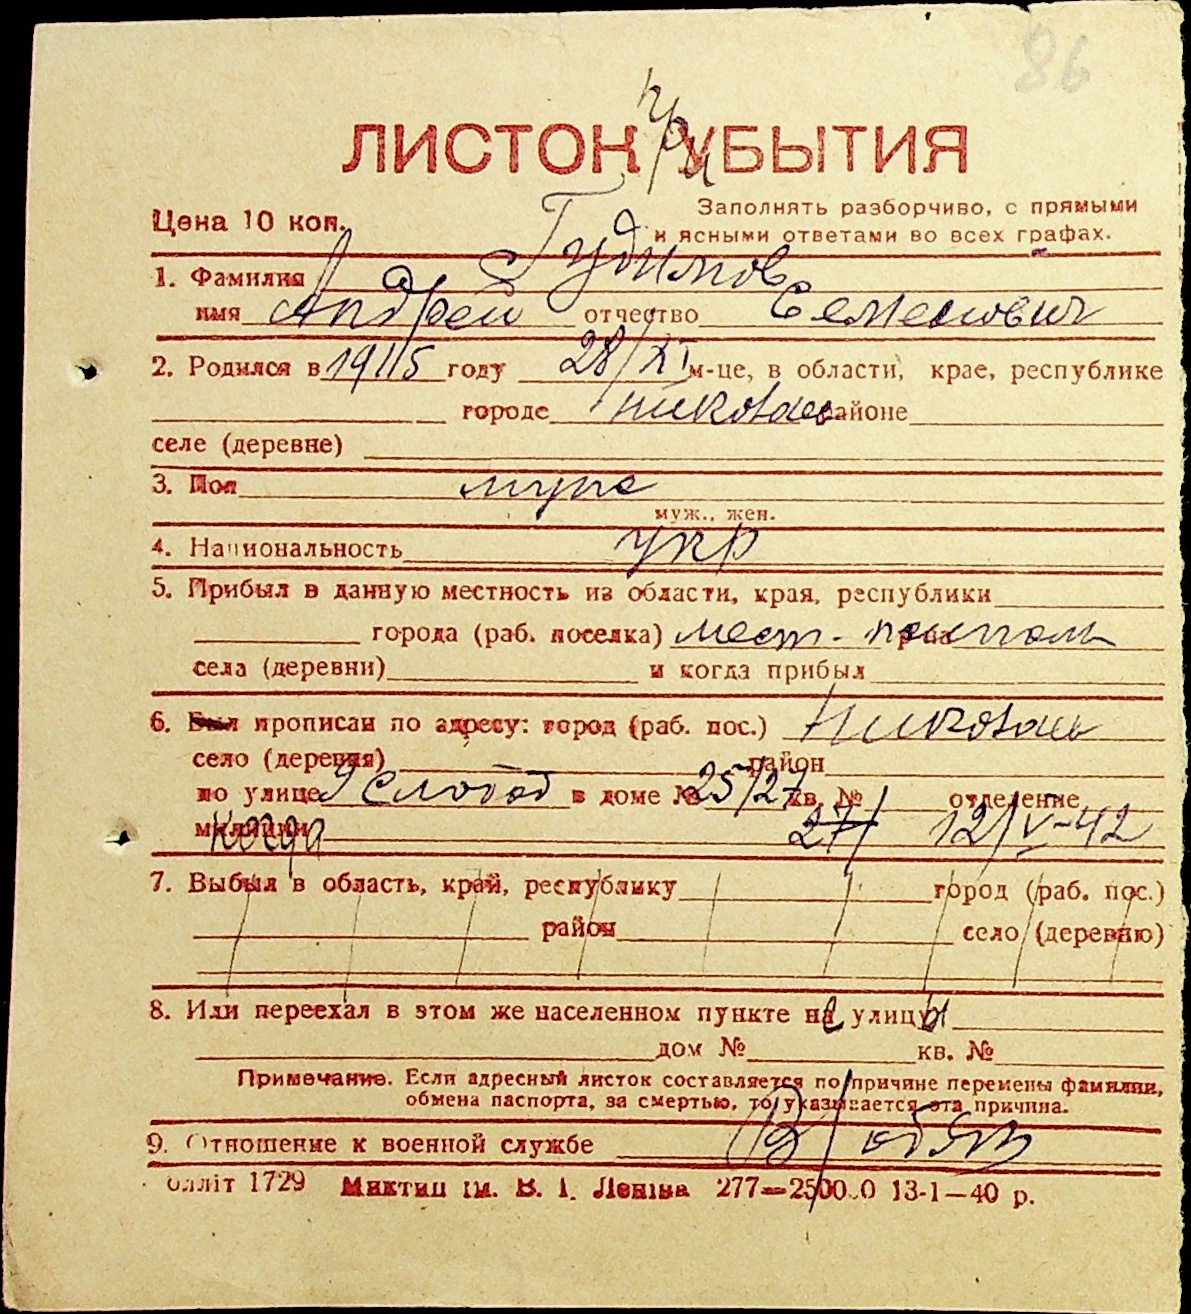 86
при
ЛИСТОК УБЫТИЯ
Цена 10 коп.
Заполнять разборчиво, с прямыми
и ясными ответами во всех графах.
1. Фамилия Гудимов
имя Андрей отчество Семенович
2. Родился в 1915 году 28/XI м-це, в области, крае, республике
городе Николаев районе
селе (деревне)
3. Пол муж
муж., жен.
4. Национальность укр
5. Прибыл в данную местность из области, края, республики
города (раб. поселка) мест- р-на
села (деревни) и когда прибыл
6. Был прописан по адресу: город (раб. пос.) Николаев
село (деревня) район
по улице Слобод в доме № 25/27 кв. № отделение
милиции когда 27/ 12/V-42
7. Выбыл в область, край, республику город (раб. пос.)
район село (деревню)
8. Или переехал в этом же населенном пункте на улицу
дом № кв. №
Примечание. Если адресный листок составляется по причине перемены фамилии,
обмена паспорта, за смертью, то указывается эта причина.
9. Отношение к военной службе В/обяз
олліт 1729 Миктип ім. В. І. Леніна 277—25000 13-1—40 р.